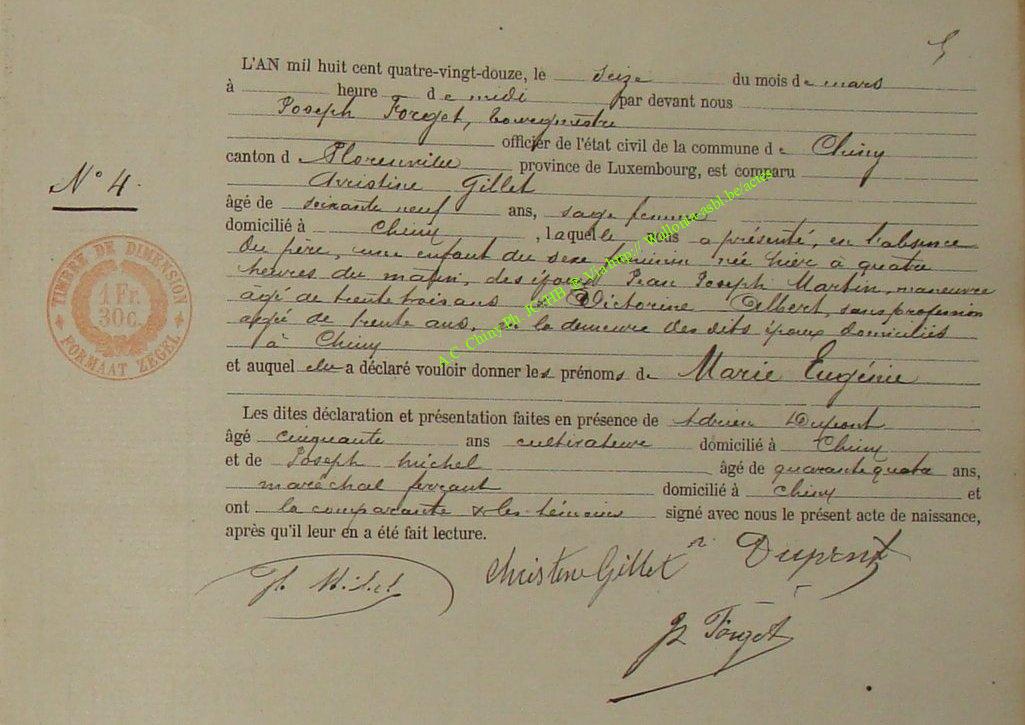 5
L'AN mil huit cent quatre-vingt-douze, le seize du mois de mars
à heure de midi par devant nous
Joseph Forget, bourgmestre
officier de l'état civil de la commune de Chiny
canton d Florenville province de Luxembourg, est comparu
N° 4.
Gillet
âgé de soixante neuf ans, sage femme
domicilié à Chiny, laquelle nous a présenté, en l'absence
du père, une enfant du sexe féminin née hier à quatre
heures du matin, des époux Jean Joseph Martin, manœuvre
âgé de trente trois ans & Victorine Gilbert, sans profession
âgée de trente ans, en la demeure des dits époux domiciliés
à Chiny
et auquel elle a déclaré vouloir donner les prénoms de Marie Eugénie
Les dites déclaration et présentation faites en présence de Adrien Dupont
âgé cinquante ans cultivateur domicilié à Chiny
et de Joseph Michel âgé de quarante quatre ans,
maréchal ferrant domicilié à Chiny et
ont la comparante & les témoins signé avec nous le présent acte de naissance,
après qu'il leur en a été fait lecture.
Jh Michel Gillet Dupont
Forget
TIMBRE DE DIMENSION
1 Fr.
30 c.
FORMAAT ZEGEL
A.C. Chiny Ph. JCHB @ Via http:// Wallonia.asbl.be/actes